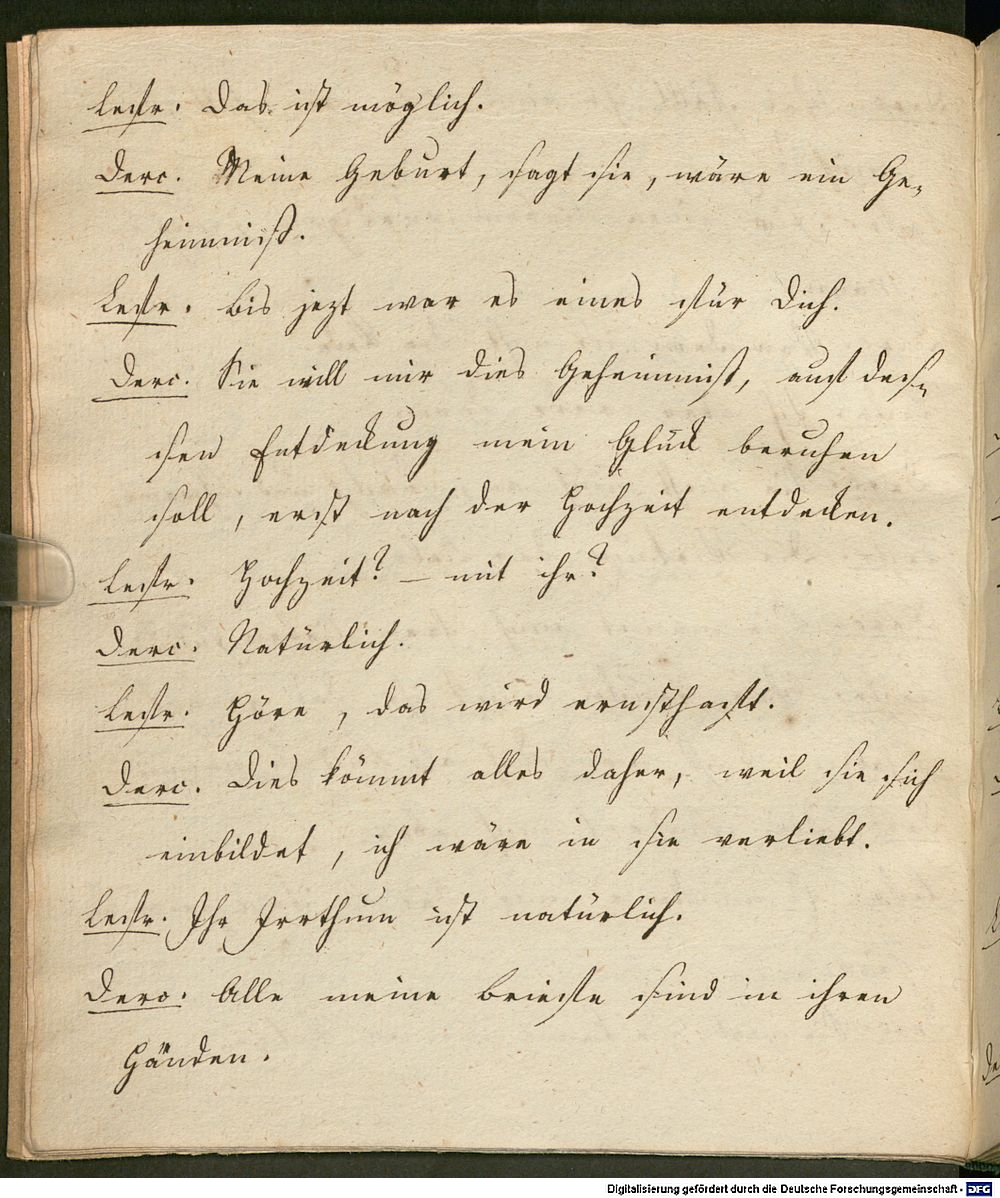 Lestr. Das ist möglich.
Derc. Meine Geburt, sagt sie, wäre ein Ge-
heimniß.
Lestr. bis jezt war es eines für Dich.
Derc. Sie will mir dies Geheimniß, auf des-
sen Entdeckung mein Glück beruhen
soll, erst nach der Hochzeit entdecken.
Lestr. Hochzeit? – mit ihr?
Derc. Natürlich.
Lestr. Höre, das wird ernsthaft.
Derc. Dies kömmt alles daher, weil sie sich
einbildet, ich wäre in sie verliebt.
Lestr. Ihr Irrthum ist natürlich.
Derc. Alle meine briefe sind in ihren
Händen.
Digitalisierung gefördert durch die Deutsche Forschungsgemeinschaft - DFG